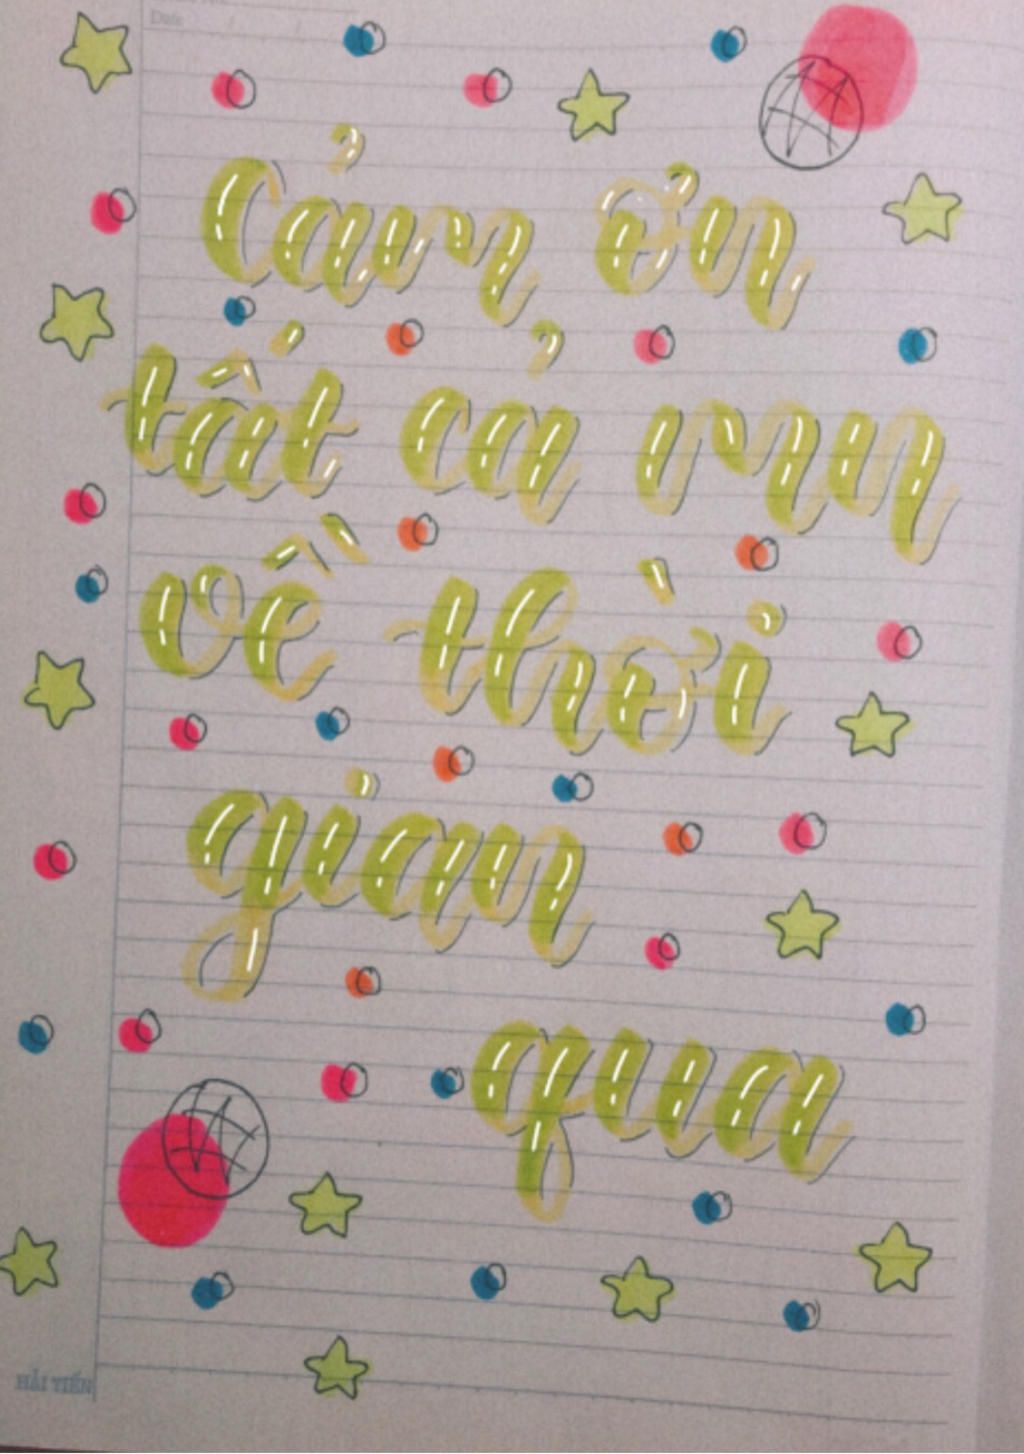 Date
Cảm ơn
tất cả mn
về thời
gian
qua
HẢI TIẾN